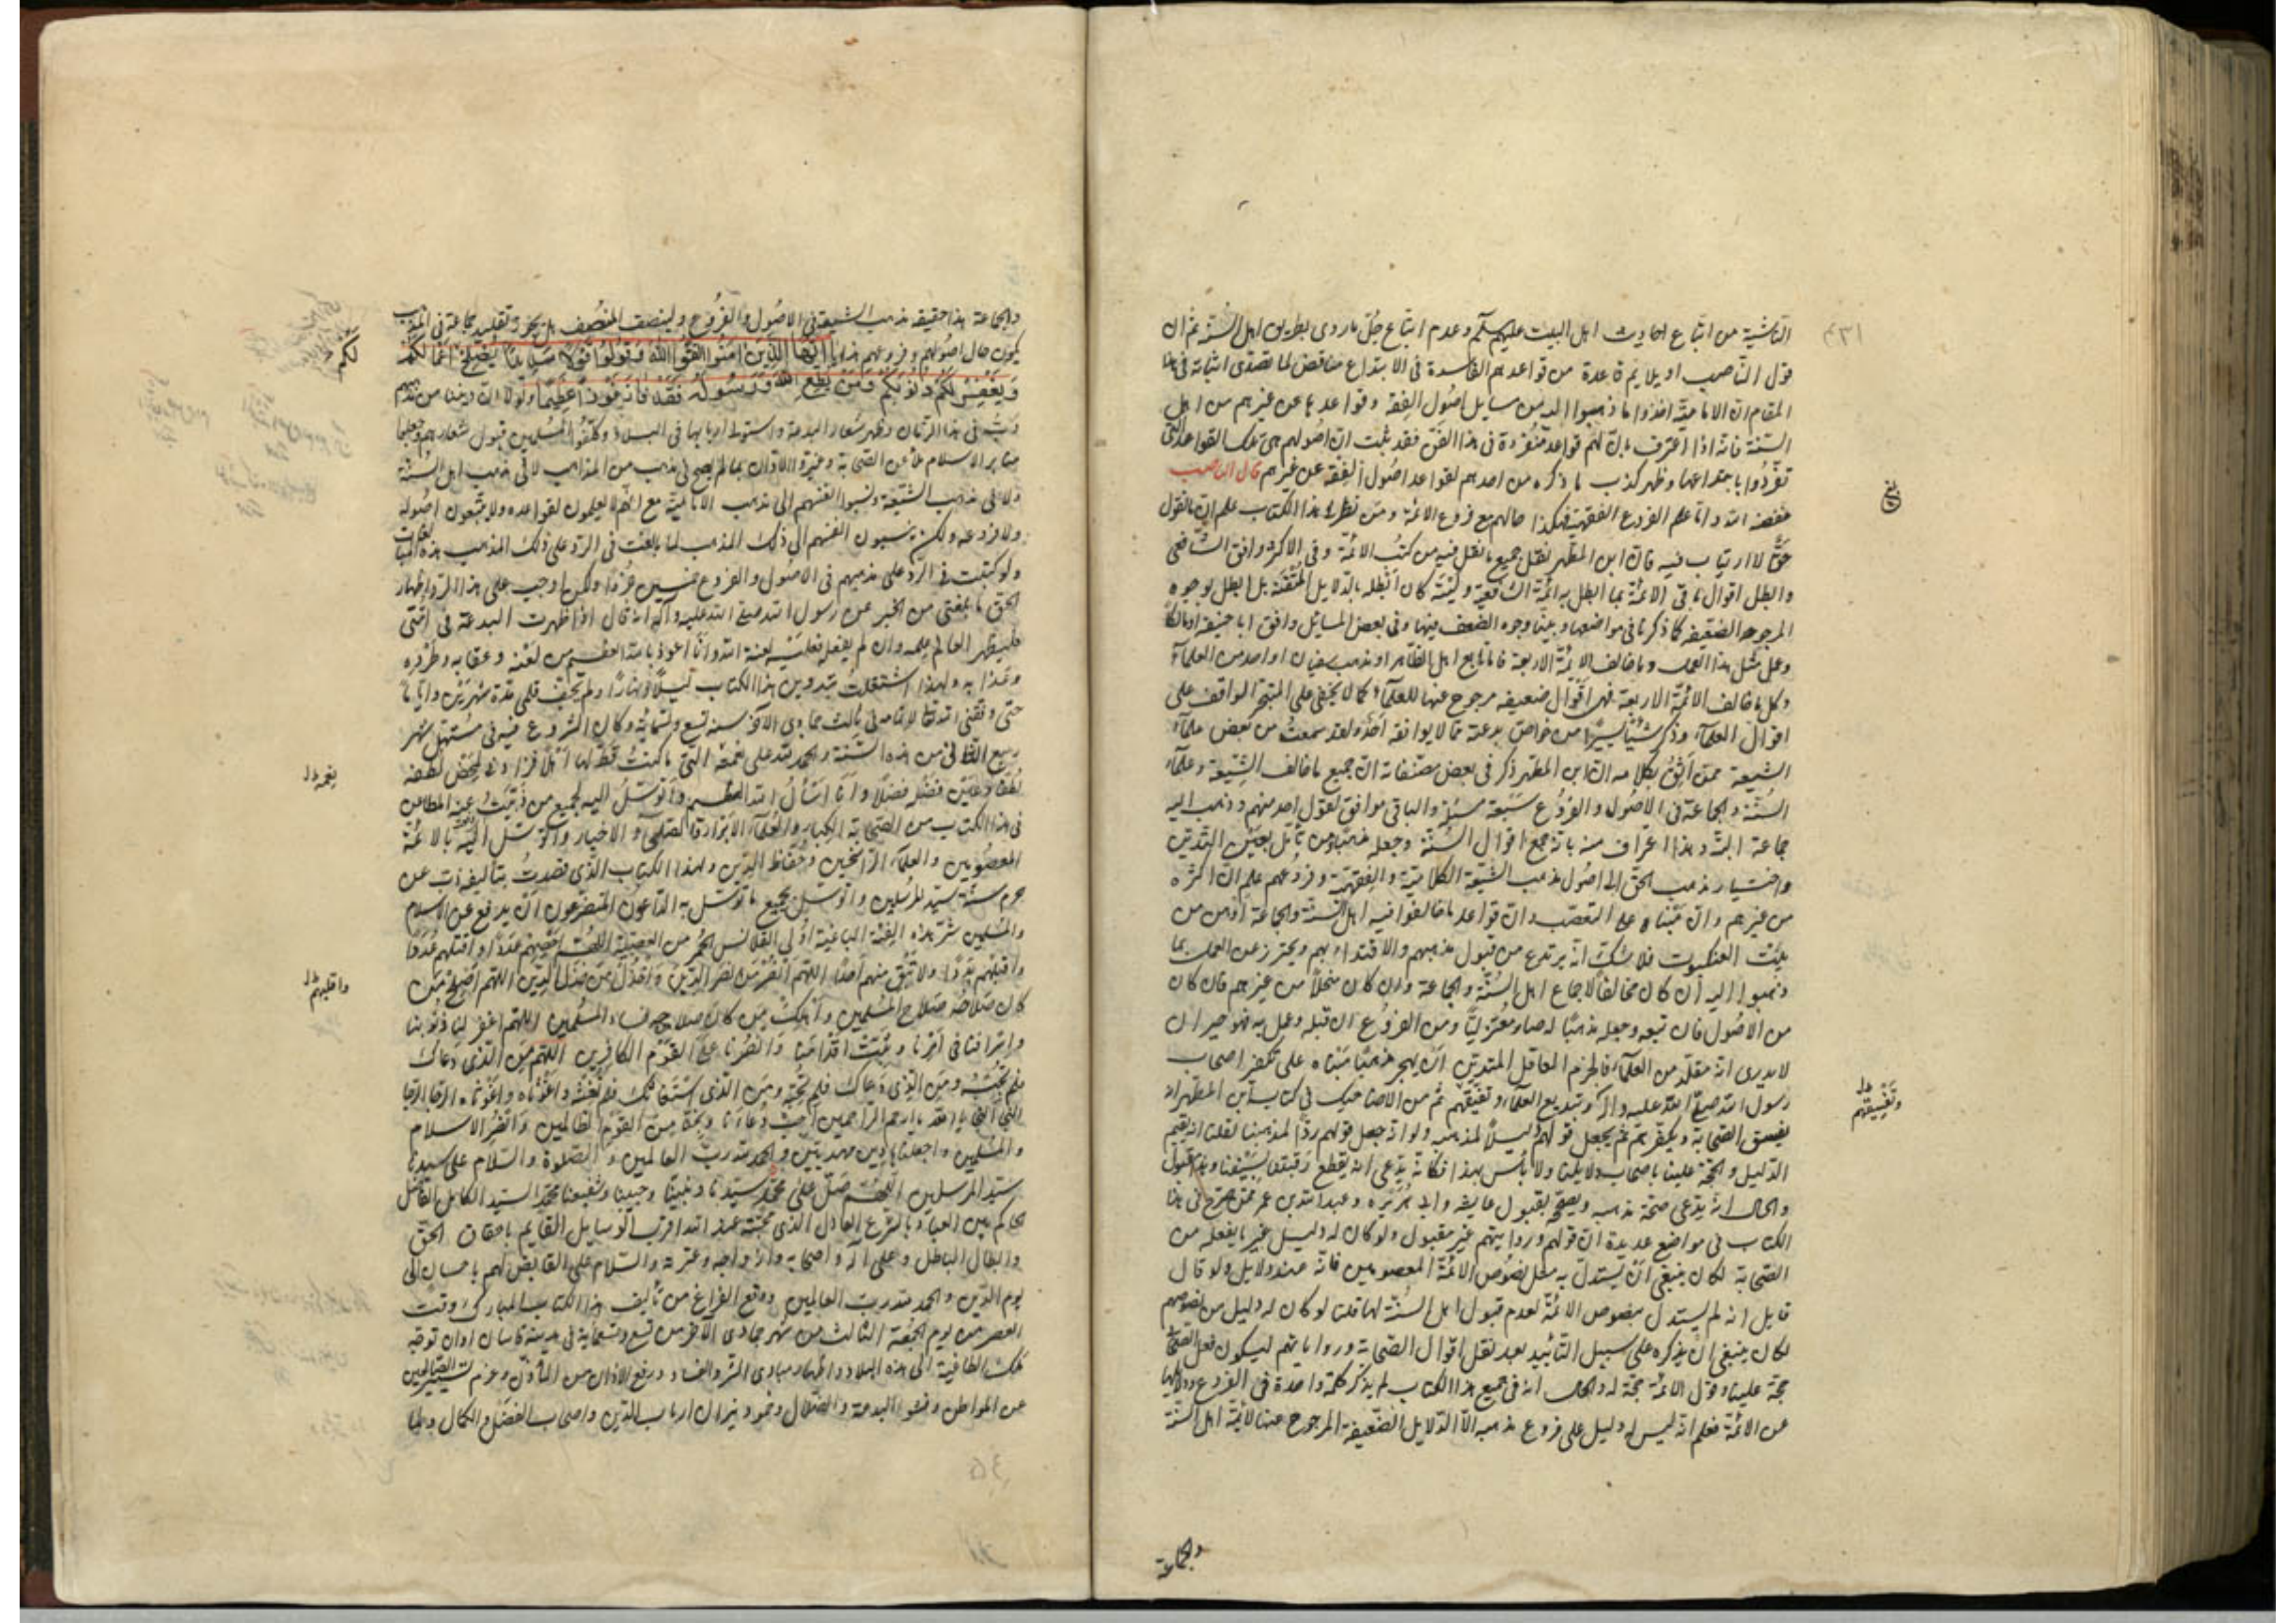 الناشية من اتباع احاديث اهل البيت عليهم السلم وعدم اتباع جل ما روى بطريق اهل السنة ثم ان
قول الناصب اويلايم قاعدة من قواعدهم الفاسدة فى الابتداع مناقض لما تصدى اثباته فى هذا
المقام ان الامامية اخذوا ما ذهبوا اليه من مسايل اصول الفقه وقواعدها عن غيرهم من اهل
السنة فانه اذا اعترف بان لهم قواعد متفردة فى هذا الفن فقد ثبت ان اصولهم هى تلك القواعد التى
تفردوا باختراعها وظهر كذب ما ذكره من اخذهم لقواعد اصول الفقه عن غيرهم قال الناصب
خفضه الله واما علم الفروع الفقهية فهكذا حالهم مع فروع الائمة ومن نظر فى هذا الكتاب علم ان ما نقول
حق لا ارتياب فيه فان ابن المطهر نقل جميع ما نقل فيه من كتب الائمة وفى الاكثر وافق الشافعى
وابطل اقوال باقى الائمة بما ابطل به ائمة الشافعية وليته كان ابطله بالدلايل المتقنة بل ابطل بوجوه
المرجوحه الضعيفه كما ذكرنا فى مواضعها وبينا وجوه الضعف فيها وفى بعض المسايل وافق ابا حنيفه او مالكا
وعمل مثل هذا العمل وما خالف الائمة الاربعة فاما تابع اهل الظاهر او مذهب سفيان او احد من العلماء
وكل ما خالف الائمة الاربعة فهى اقوال ضعيفه مرجوح عنها للعلماء كما لا يخفى على المتبحر الواقف على
اقوال العلماء وذكر شيئا يسيرا من خواص بدعته مما لا يوافقه احد ولقد سمعت من بعض علماء
الشيعة ممن اثق بكلامه ان ابن المطهر ذكر فى بعض مصنفاته ان جميع ما خالف الشيعة وعلماء
السنة والجماعة فى الاصول والفروع سبعة مسئلة والباقى موافق لقول احد منهم وذهب اليه
جماعة البتة وهذا اعتراف منه بانه جمع اقوال السنة وجعله مذهبا ومن تامل بعين التدين
واختيار مذهب الحق الى اصول مذهب الشيعة الكلامية والفقهية وفروعهم علم ان اكثره
من غيرهم وان مبناه على التعصب وان قواعد ما خالفوا فيه اهل السنة والجماعة اوهن من
بيت العنكبوت فلا شك انه يرتدع من قبول مذهبهم والاقتداء بهم ويحترز عن العمل بما
ذهبوا اليه ان كان مخالفا لاجماع اهل السنة والجماعة وان كان منحلا من غيرهم فان كان
من الاصول فان تبعه وجعله مذهبا له صار معتزليا ومن الفروع ان قبله وعمل به فهو حيران
لا يدرى انه مقلد من العلماء فالحزم العاقل المتدين ان يهجر مذهبا مبناه على تكفير اصحاب
رسول الله صلى الله عليه واله وتبديع العلماء وتفيقهم ثم من الاضاحيك فى كتاب ابن المطهر انه
يفسق الصحابة ويكفرهم ثم يجعل قولهم دليلا لمذهبه ولو انه جعل قولهم ردا لمذهبنا لقلنا انه يقيم
الدليل والحجة علينا باصحاب دلايلنا ولا باس بهذا فكانه يدعى انه يقطع رقبتنا بسيفنا
والحال انه يدعى صحة مذهبه ويصححه بقبول عايشه وابى هريره وعبد الله بن عمر ممن صرح فى هذا
الكتاب فى مواضع عديدة ان قولهم وروايتهم غير مقبول ولو كان له دليل غير ما يفعله من
الصحابة لكان ينبغى ان يستدل به مثل نصوص الائمة المعصومين فانه عنده دلايل ولو قال
قايل انه لم يستدل بنصوص الائمة لعدم قبول اهل السنة لها قلنا لو كان له دليل من نصوصهم
لكان ينبغى ان يذكره على سبيل التائيد بعد نقل اقوال الصحابة ورواياتهم ليكون فعل الصحابة
حجة علينا وقول الائمة حجة له والحال انه فى جميع هذا الكتاب لم يذكر كلمة واحدة فى الفروع ودلايلها
عن الائمة فعلم انه ليس له دليل على فروع مذهبه الا الدلايل الضعيفة المرجوح عنها لائمة اهل السنة
والجماعة
وتفسيقهم
والجماعة هذا حقيقه مذهب الشيعة فى الاصول والفروع ولينصف المنصف هل يجوز تقليد جماعة فى المذهب
يكون حال اصولهم وفروعهم هذا يا ايها الذين امنوا اتقوا الله وقولوا قولا سديدا يصلح لكم اعمالكم
ويغفر لكم ذنوبكم ومن يطع الله ورسوله فقد فاز فوزا عظيما ولولا ان دينا من
فى هذا الزمان وظهر شعار البدعة واستولى اربابها فى البلاد وكلفوا المسلمين قبول شعارهم وجعلوا
منابر الاسلام ملأ عن الصحابة وغيروا الاذان بما لم يصح فى مذهب من المذاهب لا فى مذهب اهل السنة
ولا فى مذهب الشيعة ونسبوا انفسهم الى مذهب الامامية مع انهم لا يعلمون لقواعده ولا يتبعون اصوله
ولا فروعه ولكن ينسبون انفسهم الى ذلك المذهب لما بالغت فى الرد على ذلك المذهب هذه المبالغات
ولو كتبت فى الرد على مذهبهم فى الاصول والفروع ولكن اوجب على هذا الرد واظهار
الحق ما بلغنى من الخبر عن رسول الله صلى الله عليه واله انه قال اذا ظهرت البدعة فى امتى
فليظهر العالم علمه وان لم يفعل فعليه لعنة الله وانا اعوذ بالله العظيم من لعنه وعقابه وطرده
وعذابه ولهذا اشتغلت بتدوين هذا الكتاب ليلا ونهارا ولم تجف قلمى مدة شهرين واياما
حتى وفقنى الله تعالى لاتمامه فى ثالث جمادى الاخر سنه تسع وتسمائه وكان الشروع فيه فى مستهل شهر
ربيع الثانى من هذه السنة والحمد لله على نعمه التى ما كنت قط لها اهلا فزادنى لمحض لطفه
لطفا وعين فضله فضلا وانا اسأل الله العظيم واتوسل اليه بجميع من ذببت عنه المطاعن
فى هذا الكتاب من الصحابة الكبار والعلماء الابرار والصلحاء الاخيار واتوسل اليه بالائمة
المعصومين والعلماء الراسخين وحفاظ الدين ولهذا الكتاب الذى قصدت بتاليفه الذب عن
حرم سنة سيد المرسلين واتوسل بجميع ما توسل به الداعون المتضرعون ان يدفع عن الاسلام
والمسلمين شر هذه الفئة الباغية اولى القلانس الحمر من العصبية اللهم احصهم عددا واقتلهم بددا
ولا تبق منهم احدا اللهم انصر من نصر الدين واخذل من خذل الدين اللهم اصلح من
كان صلاحه صلاح المسلمين واهلك من كان صلاحه فساد المسلمين اللهم اغفر لنا ذنوبنا
واسرافنا فى امرنا وثبت اقدامنا وانصرنا على القوم الكافرين اللهم من الذى دعاك
فلم تجبه ومن الذى استغاثك فلم تغثه واغوثاه واغوثاه
يا الله يا ارحم الراحمين اجب دعاءنا ونجنا من القوم الظالمين وانصر الاسلام
والمسلمين واجعلنا هادين مهديين والحمد لله رب العالمين والصلوة والسلام على سيدنا
سيد المرسلين اللهم صل على محمد سيدنا ونبينا وحبيبنا وشفيعنا محمد السيد الكامل الفاضل
الحاكم بين العباد بالشرع العادل الذى محبته عند الله اقرب الوسايل القايم باحقاق الحق
وابطال الباطل وعلى اله واصحابه وازواجه وعترته والسلام على التابعين لهم باحسان الى
يوم الدين والحمد لله رب العالمين ووقع الفراغ من تاليف هذا الكتاب المبارك وقت
العصر من يوم الجمعة الثالث من شهر جمادى الاخر من تسع وتسعماية فى مدينة قاسان اوان توجه
ملك الطاغية الى هذه البلاد واظهار مبادى الشر والفساد ورفع الاذان من المأذن وعزم تسيير الصالحين
عن المواطن وفشو البدعة والضلال وخمود نيران ارباب الدين واصحاب الفضل والكمال
لكم
واقلبهم